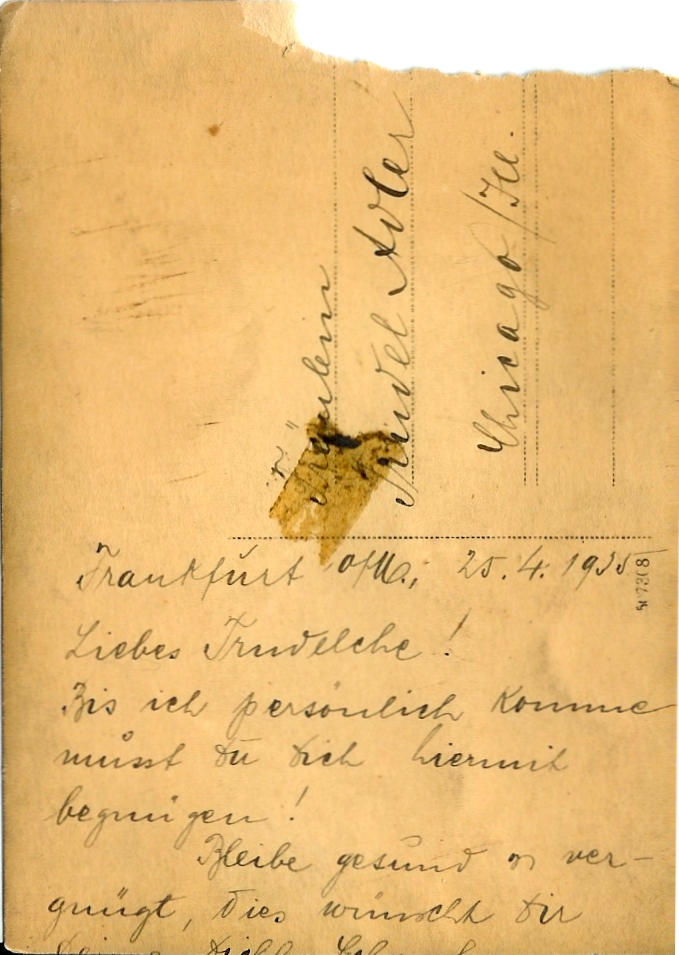 Fräulein
Trudel Adler
Chicago/Ill.
Frankfurt a/M., 25.4.1935
Liebes Trudelche!
Bis ich persönlich komme
müsst Du Dich hiermit
begnügen!
Bleibe gesund u ver-
gnügt, dies wünscht Dir